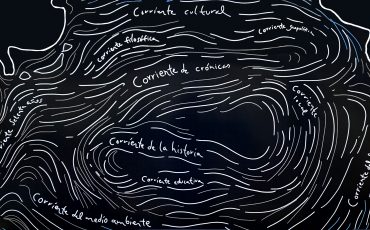 Corriente cultural
Corriente filosófica
Corriente geopolítica
Corriente de crónicas
Corriente social
Corriente de la historia
Corriente educativa
Corriente del medio ambiente
Corriente del